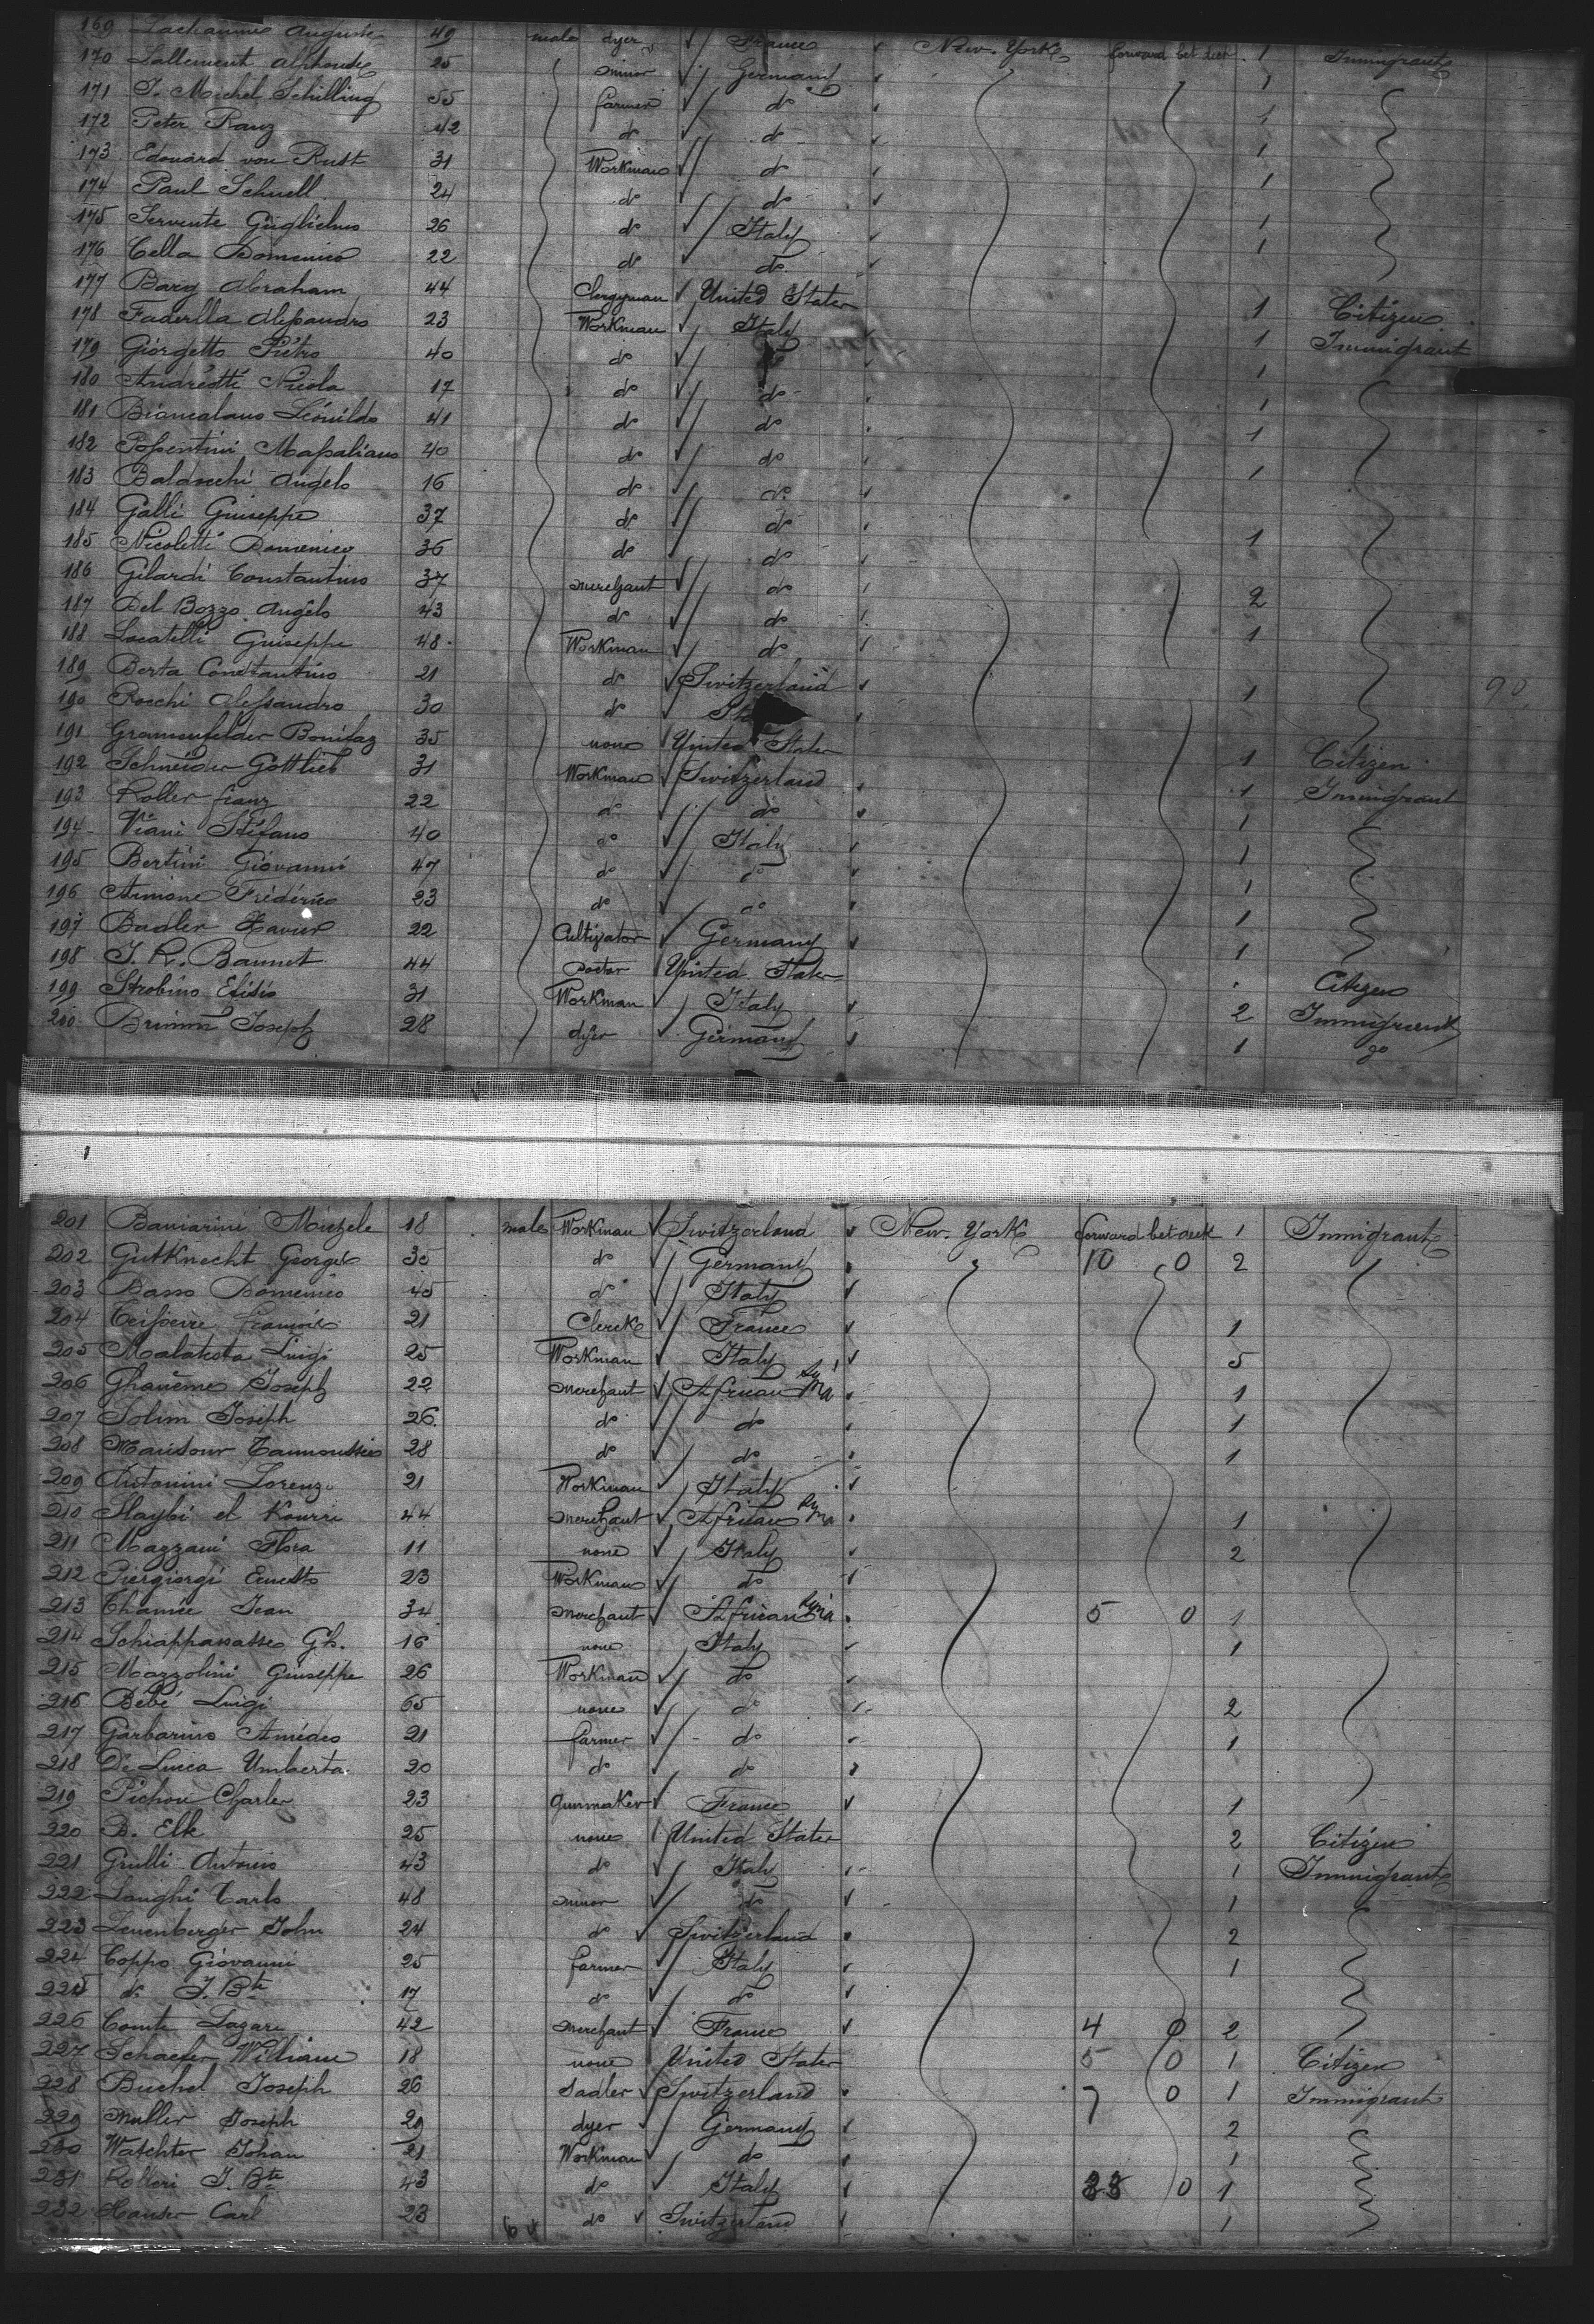 169 Lachaume Auguste 49 male dyer France New-York forward bet deck 1 Immigrant
170 Lallement Alphonse 25 minor Germany 1
171 J. Michel Schilling 55 farmer do 1
172 Peter Ranz 42 do do 1
173 Edouard von Rust 31 Workman do 1
174 Paul Schnell 24 do do
175 Servente Guglielmo 26 do Italy 1
176 Cella Domenico 22 do do 1
177 Barg Abraham 44 Clergyman United States 1 Citizen
178 Faderlla Alessandro 23 Workman Italy 1 Immigrant
179 Giorgetto Pietro 40 do 1
180 Andreotti Nicola 17 do do 1
181 Biancalano Leonildo 41 do do 1
182 Possentini Massaliano 40 do do 1
183 Baldocchi Angelo 16 do do
184 Galli Guiseppe 37 do do 1
185 Nicoletti Domenico 36 do do
186 Gilardi Constantino 37 merchant do 2
187 Del Bozzo Angelo 43 do do 1
188 Locatelli Guiseppe 48 Workman do
189 Berta Constantino 21 do Switzerland 1
190 Rocchi Alessandro 30 do
191 Gramenfelder Bonifaz 35 none United States 1 Citizen
192 Schneider Gottlieb 31 Workman Switzerland 1 Immigrant
193 Roller franz 22 do do 1
194 Viani Stefano 40 do Italy 1
195 Bertini Giovanni 47 do do 1
196 Aimone Frédérico 23 do do 1
197 Badler Xavier 22 Cultivator Germany 1
198 J. R. Baumet 44 Doctor United States Citizen
199 Strobino Efisio 31 Workman Italy 2 Immigrant
200 Brimm Joseph 28 dyer Germany 1 do
201 Baniarini Michele 18 male Workman Switzerland New-York forward bet deck 1 Immigrant
202 Gutknecht George 35 do Germany 10 0 2
203 Basso Domenico 45 do Italy
204 Teisseire francois 21 Clerck France 1
205 Malatesta Luigi 25 Workman Italy 5
206 Ghanême Joseph 22 merchant African Syria 1
207 Solim Joseph 26 do do 1
208 Mansour Tannoussie 28 do do 1
209 Antonini Lorenzo 21 Workman Italy
210 Slaybi el Kourri 44 merchant African Syria 1
211 Mazzani Flora 11 none Italy 2
212 Piergiorgi Ernesto 23 Workman do
213 Chamie Jean 34 merchant African Syria 5 0 1
214 Schiappacasse Gb. 16 none Italy 1
215 Mazzolini Guiseppe 26 Workman do
216 Bébé Luigi 65 none do 2
217 Garbarino Amédeo 21 farmer do 1
218 De Lucca Umberta 20 do do
219 Pichon Charles 23 Gunmaker France 1
220 B. Elk 25 none United States 2 Citizen
221 Grilli Antonio 43 do Italy 1 Immigrant
222 Longhi Carlo 48 minor do 1
223 Leuenberger John 24 do Switzerland 2
224 Coppo Giovanni 25 farmer Italy 1
225 do J. Bte 17 do do
226 Comte Lazare 42 merchant France 4 0 2
227 Schaefer William 18 none United States 5 0 1 Citizen
228 Buchel Joseph 26 Sadler Switzerland 7 0 1 Immigrant
229 Muller Joseph 29 dyer Germany 2
230 Watchter Johan 21 Workman do 1
231 Rolleri J. Bte 43 do Italy 33 0 1
232 Hauser Carl 23 do Switzerland 1